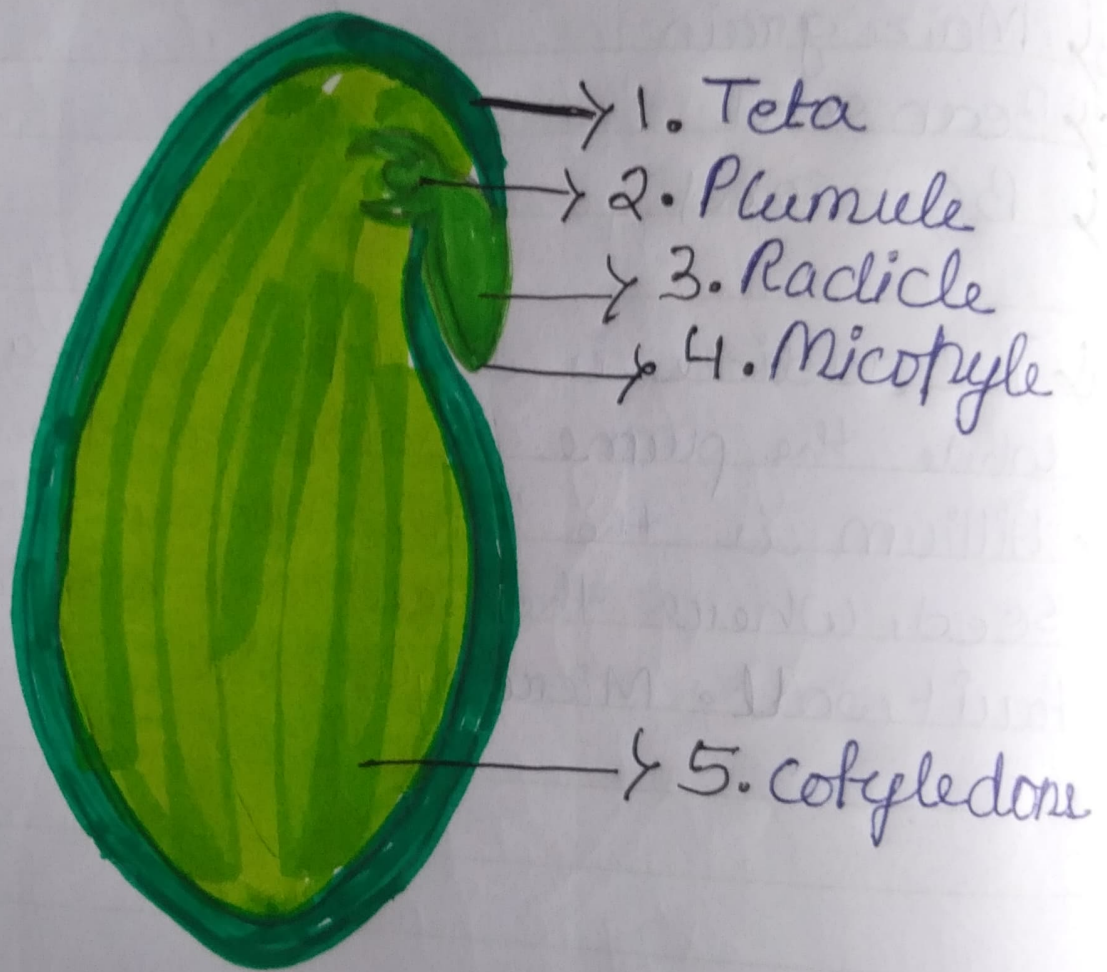 1. Teta
2. Plumule
3. Radicle
4. Micopyle
5. Cotyledons